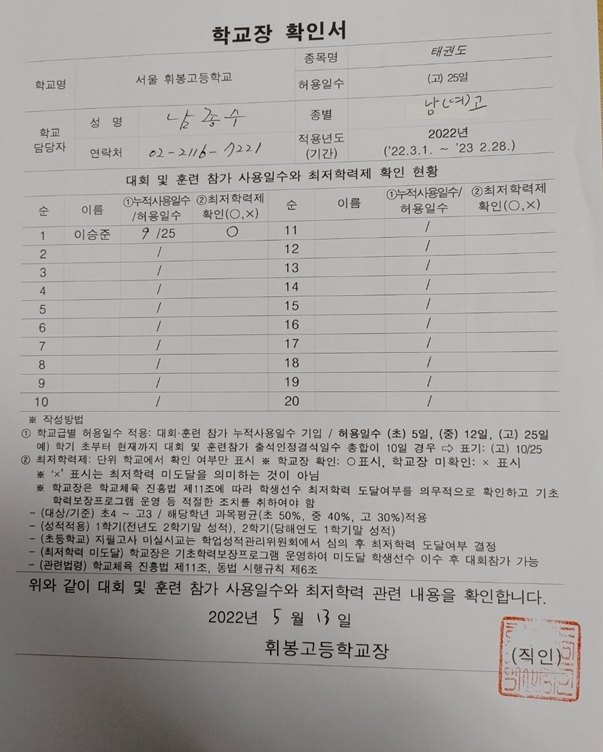 학교장 확인서
학교명 서울 휘봉고등학교 종목명 태권도
허용일수 (고) 25일
학교 담당자 성 명 남궁수 종별 남(여)고
연락처 02-2116-7221 적용년도 (기간) 2022년 ('22.3.1. ~ '23 2.28.)
대회 및 훈련 참가 사용일수와 최저학력제 확인 현황
순 이름 ①누적사용일수/허용일수 ②최저학력제 확인(○,×) 순 이름 ①누적사용일수/허용일수 ②최저학력제 확인(○,×)
1 이승준 9/25 ○ 11 /
2 / 12 /
3 / 13 /
4 / 14 /
5 / 15 /
6 / 16 /
7 / 17 /
8 / 18 /
9 / 19 /
10 / 20 /
※ 작성방법
① 학교급별 허용일수 적용: 대회·훈련 참가 누적사용일수 기입 / 허용일수 (초) 5일, (중) 12일, (고) 25일
예) 학기 초부터 현재까지 대회 및 훈련참가 출석인정결석일수 총합이 10일 경우 ⇨ 표기: (고) 10/25
② 최저학력제: 단위 학교에서 확인 여부만 표시 ※ 학교장 확인: ○표시, 학교장 미확인: × 표시
※ '×' 표시는 최저학력 미도달을 의미하는 것이 아님
※ 학교장은 학교체육 진흥법 제11조에 따라 학생선수 최저학력 도달여부를 의무적으로 확인하고 기초
학력보장프로그램 운영 등 적절한 조치를 취하여야 함
- (대상/기준) 초4 ~ 고3 / 해당학년 과목평균(초 50%, 중 40%, 고 30%)적용
- (성적적용) 1학기(전년도 2학기말 성적), 2학기(당해연도 1학기말 성적)
- (초등학교) 지필고사 미실시교는 학업성적관리위원회에서 심의 후 최저학력 도달여부 결정
- (최저학력 미도달) 학교장은 기초학력보장프로그램 운영하여 미도달 학생선수 이수 후 대회참가 가능
- (관련법령) 학교체육 진흥법 제11조, 동법 시행규칙 제6조
위와 같이 대회 및 훈련 참가 사용일수와 최저학력 관련 내용을 확인합니다.
2022년 5 월 13 일
휘봉고등학교장 (직인)